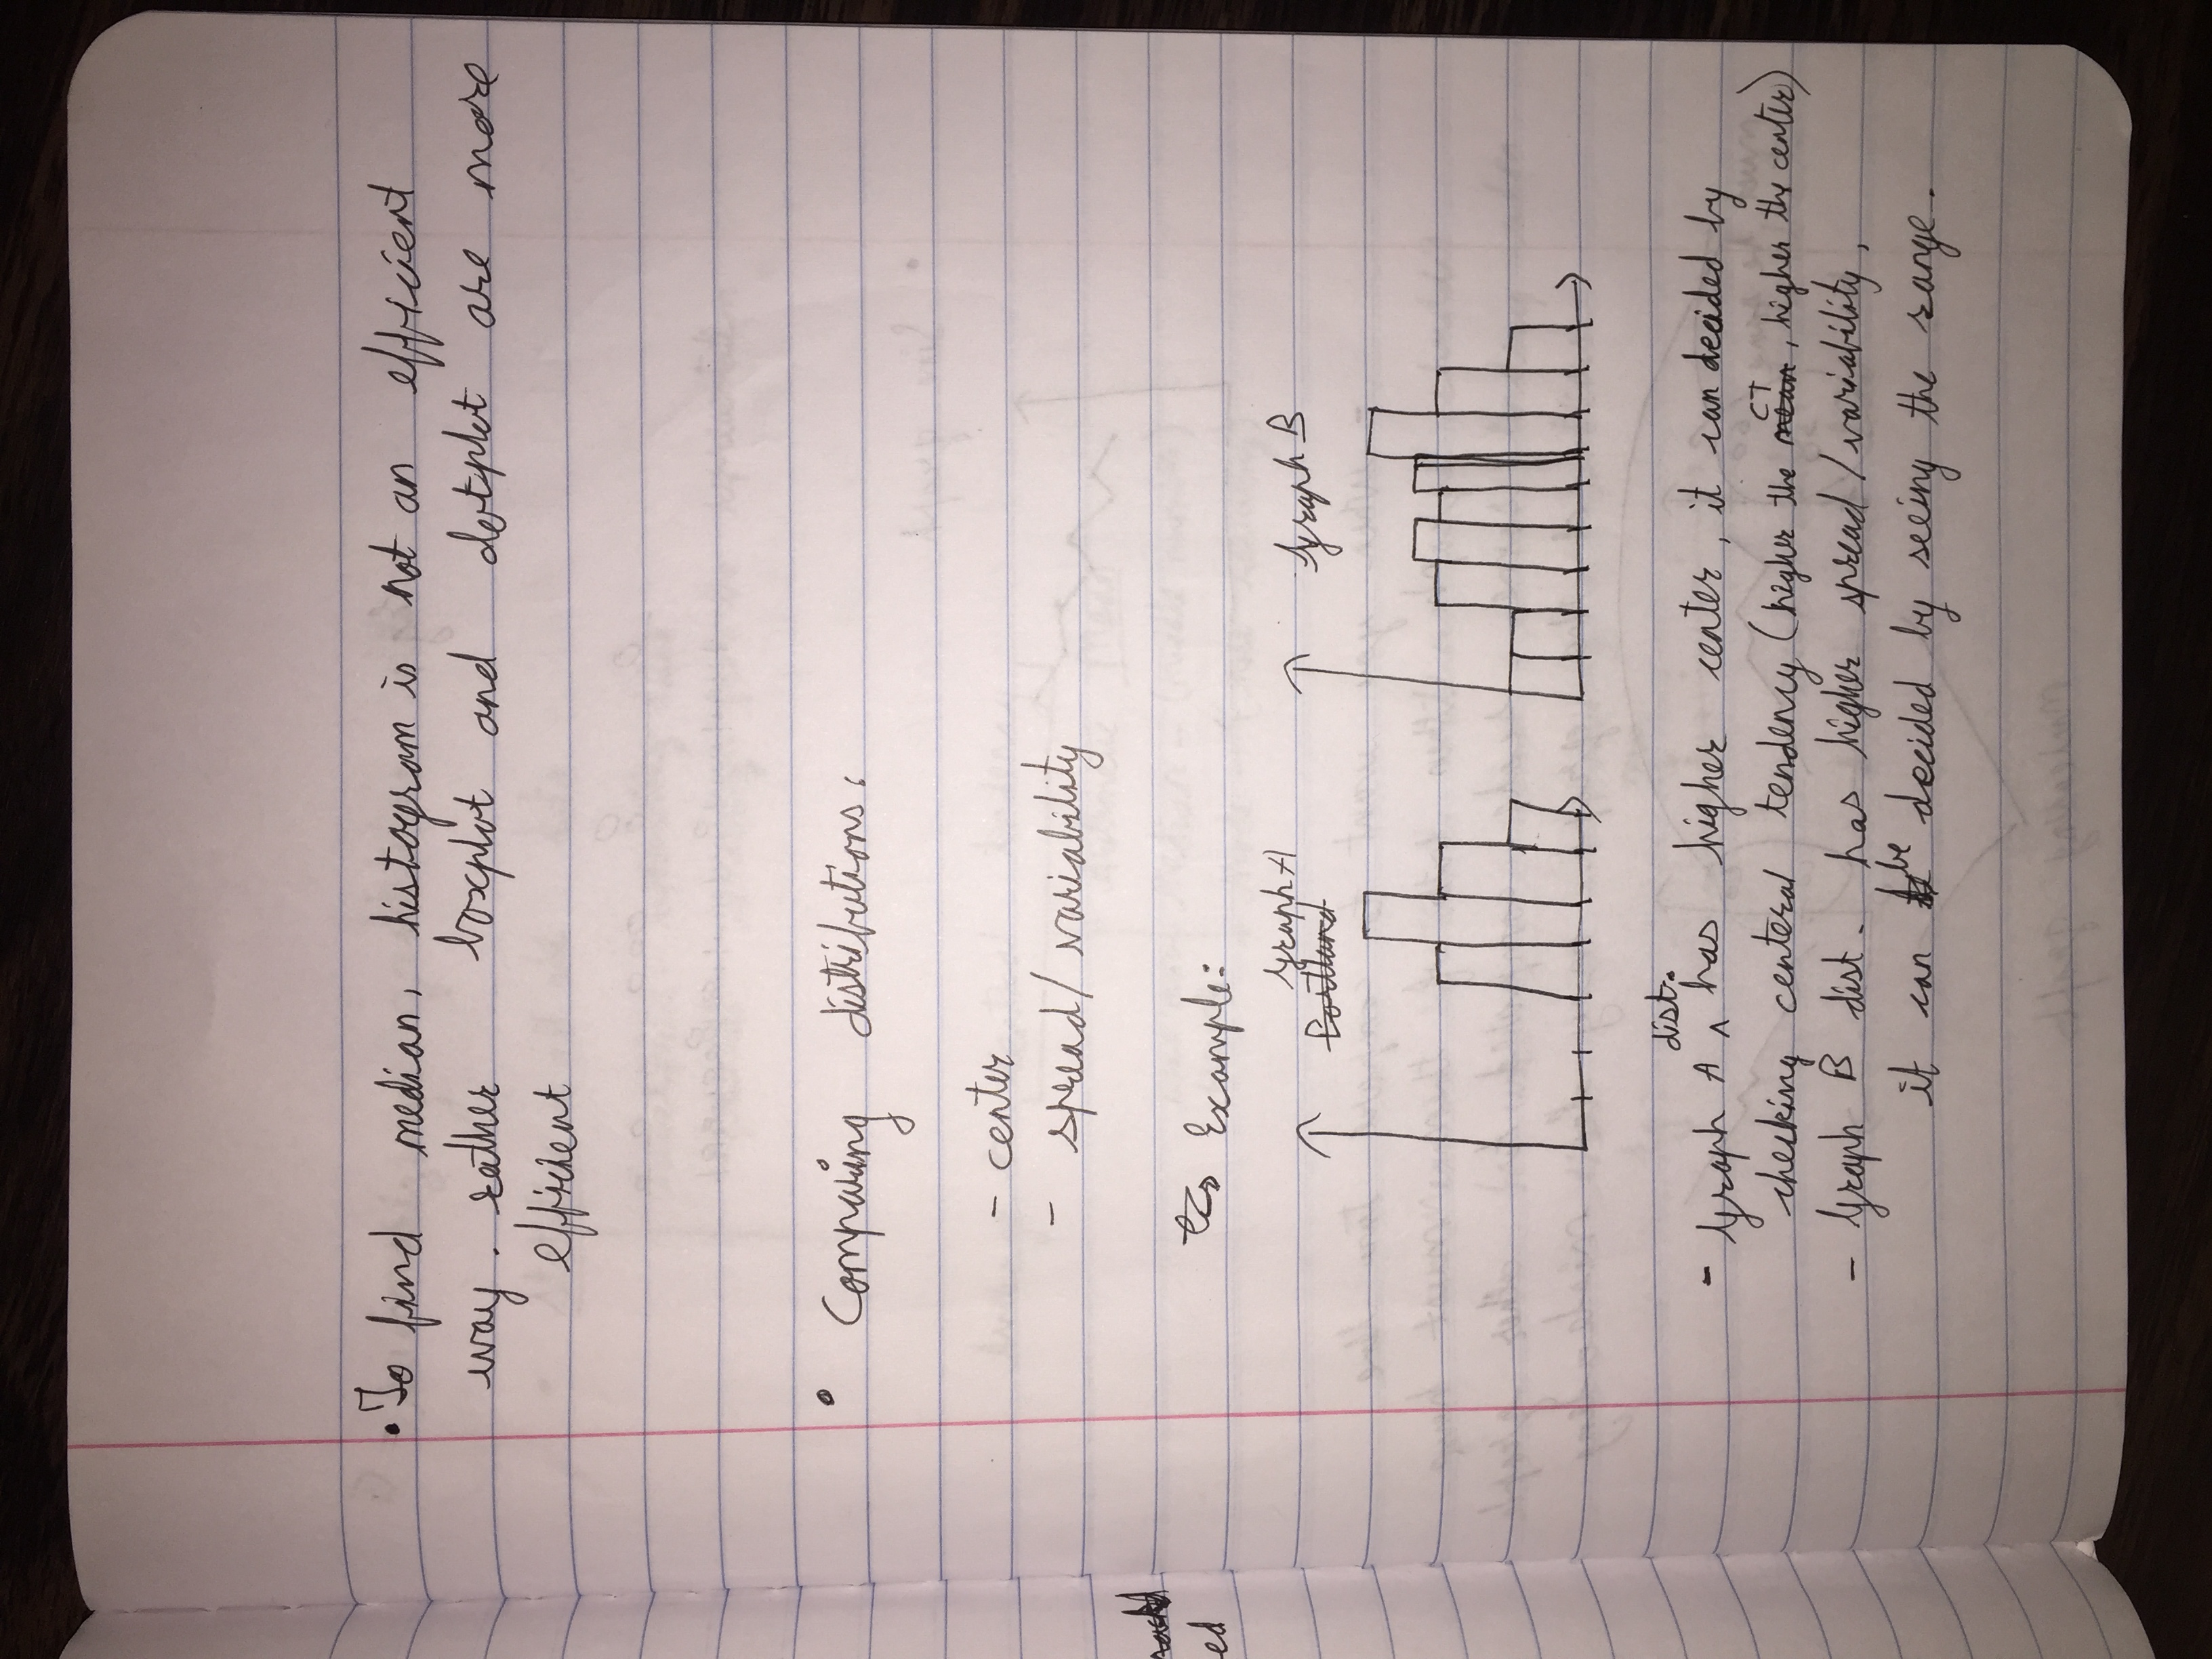 • To find median, histogram is not an efficient
way. rather boxplot and dotplot are more
efficient
• Comparing distributions:
- center
- spread/variability
Example:
Graph A
Portland
Graph B
dist.
- Graph A ^ has higher center, it can decided by
CT
checking centeral tendency (higher the mean, higher the center)
- Graph B dist. has higher spread/variability,
it can be decided by seeing the range.
ed